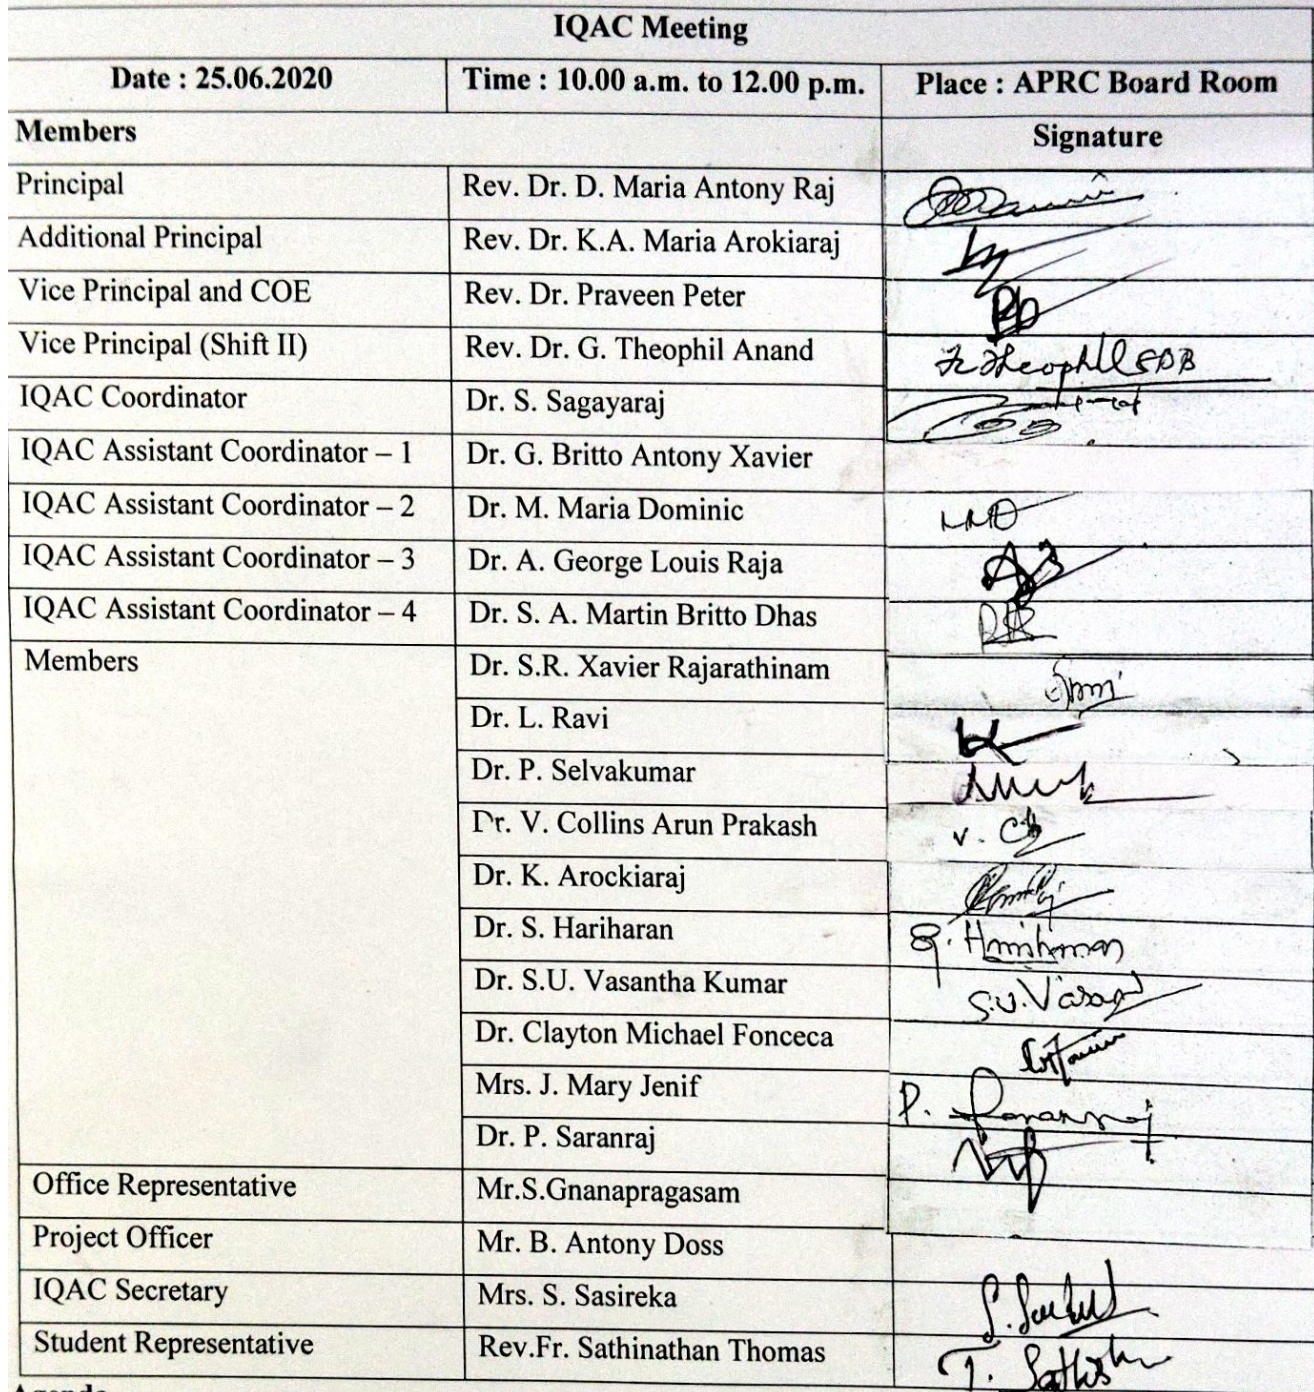 IQAC Meeting
Date : 25.06.2020 Time : 10.00 a.m. to 12.00 p.m. Place : APRC Board Room
Members Signature
Principal Rev. Dr. D. Maria Antony Raj
Additional Principal Rev. Dr. K.A. Maria Arokiaraj
Vice Principal and COE Rev. Dr. Praveen Peter
Vice Principal (Shift II) Rev. Dr. G. Theophil Anand Fr Theophil SDB
IQAC Coordinator Dr. S. Sagayaraj
IQAC Assistant Coordinator – 1 Dr. G. Britto Antony Xavier
IQAC Assistant Coordinator – 2 Dr. M. Maria Dominic
IQAC Assistant Coordinator – 3 Dr. A. George Louis Raja
IQAC Assistant Coordinator – 4 Dr. S. A. Martin Britto Dhas
Members Dr. S.R. Xavier Rajarathinam
Dr. L. Ravi
Dr. P. Selvakumar
Dr. V. Collins Arun Prakash
Dr. K. Arockiaraj
Dr. S. Hariharan S. Hariharan
Dr. S.U. Vasantha Kumar S.U. Vasan
Dr. Clayton Michael Fonceca
Mrs. J. Mary Jenif P. Saranraj
Dr. P. Saranraj
Office Representative Mr.S.Gnanapragasam
Project Officer Mr. B. Antony Doss
IQAC Secretary Mrs. S. Sasireka
Student Representative Rev.Fr. Sathinathan Thomas
Agenda